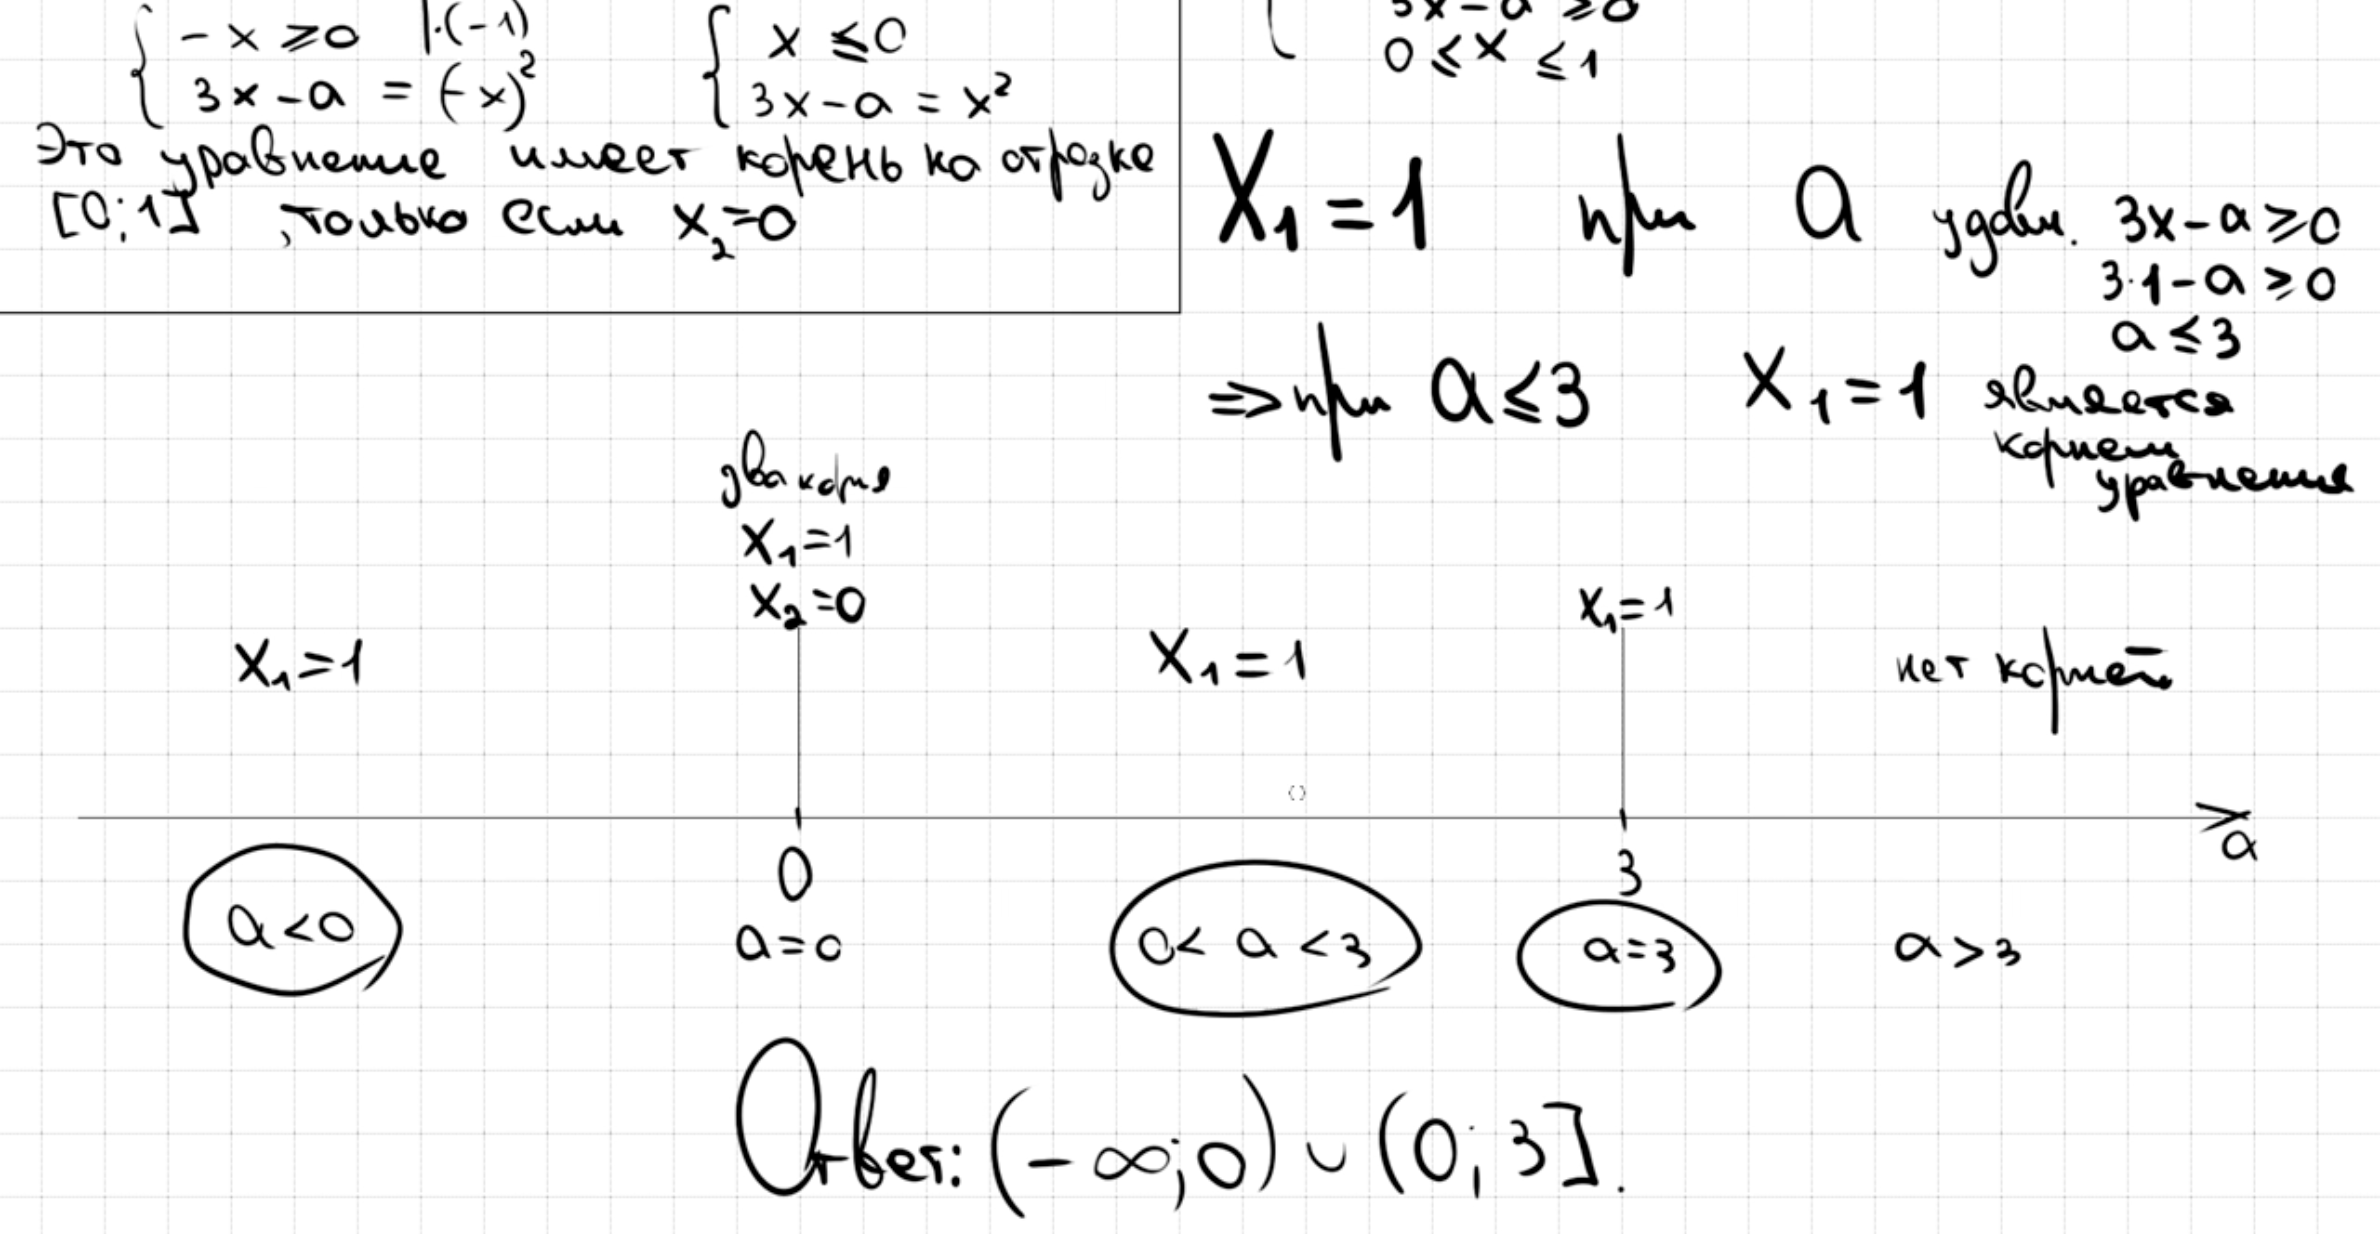 { -x ≥ 0 |·(-1)
3x-a = (-x)²
{ x ≤ 0
3x-a = x²
Это уравнение имеет корень на отрезке
[0; 1] , только если x₂=0
3x-a ≥ 0
0 ≤ x ≤ 1
X₁ = 1 при a удовл. 3x-a ≥ 0
3·1-a ≥ 0
a ≤ 3
⇒ при a ≤ 3 X₁ = 1 является
корнем
уравнения
два корня
X₁=1
X₂=0
X₁=1
X₁=1
X₁=1
нет корней
0
3
a
a<0
a=0
0< a <3
a=3
a>3
Ответ: (-∞; 0) ∪ (0; 3].